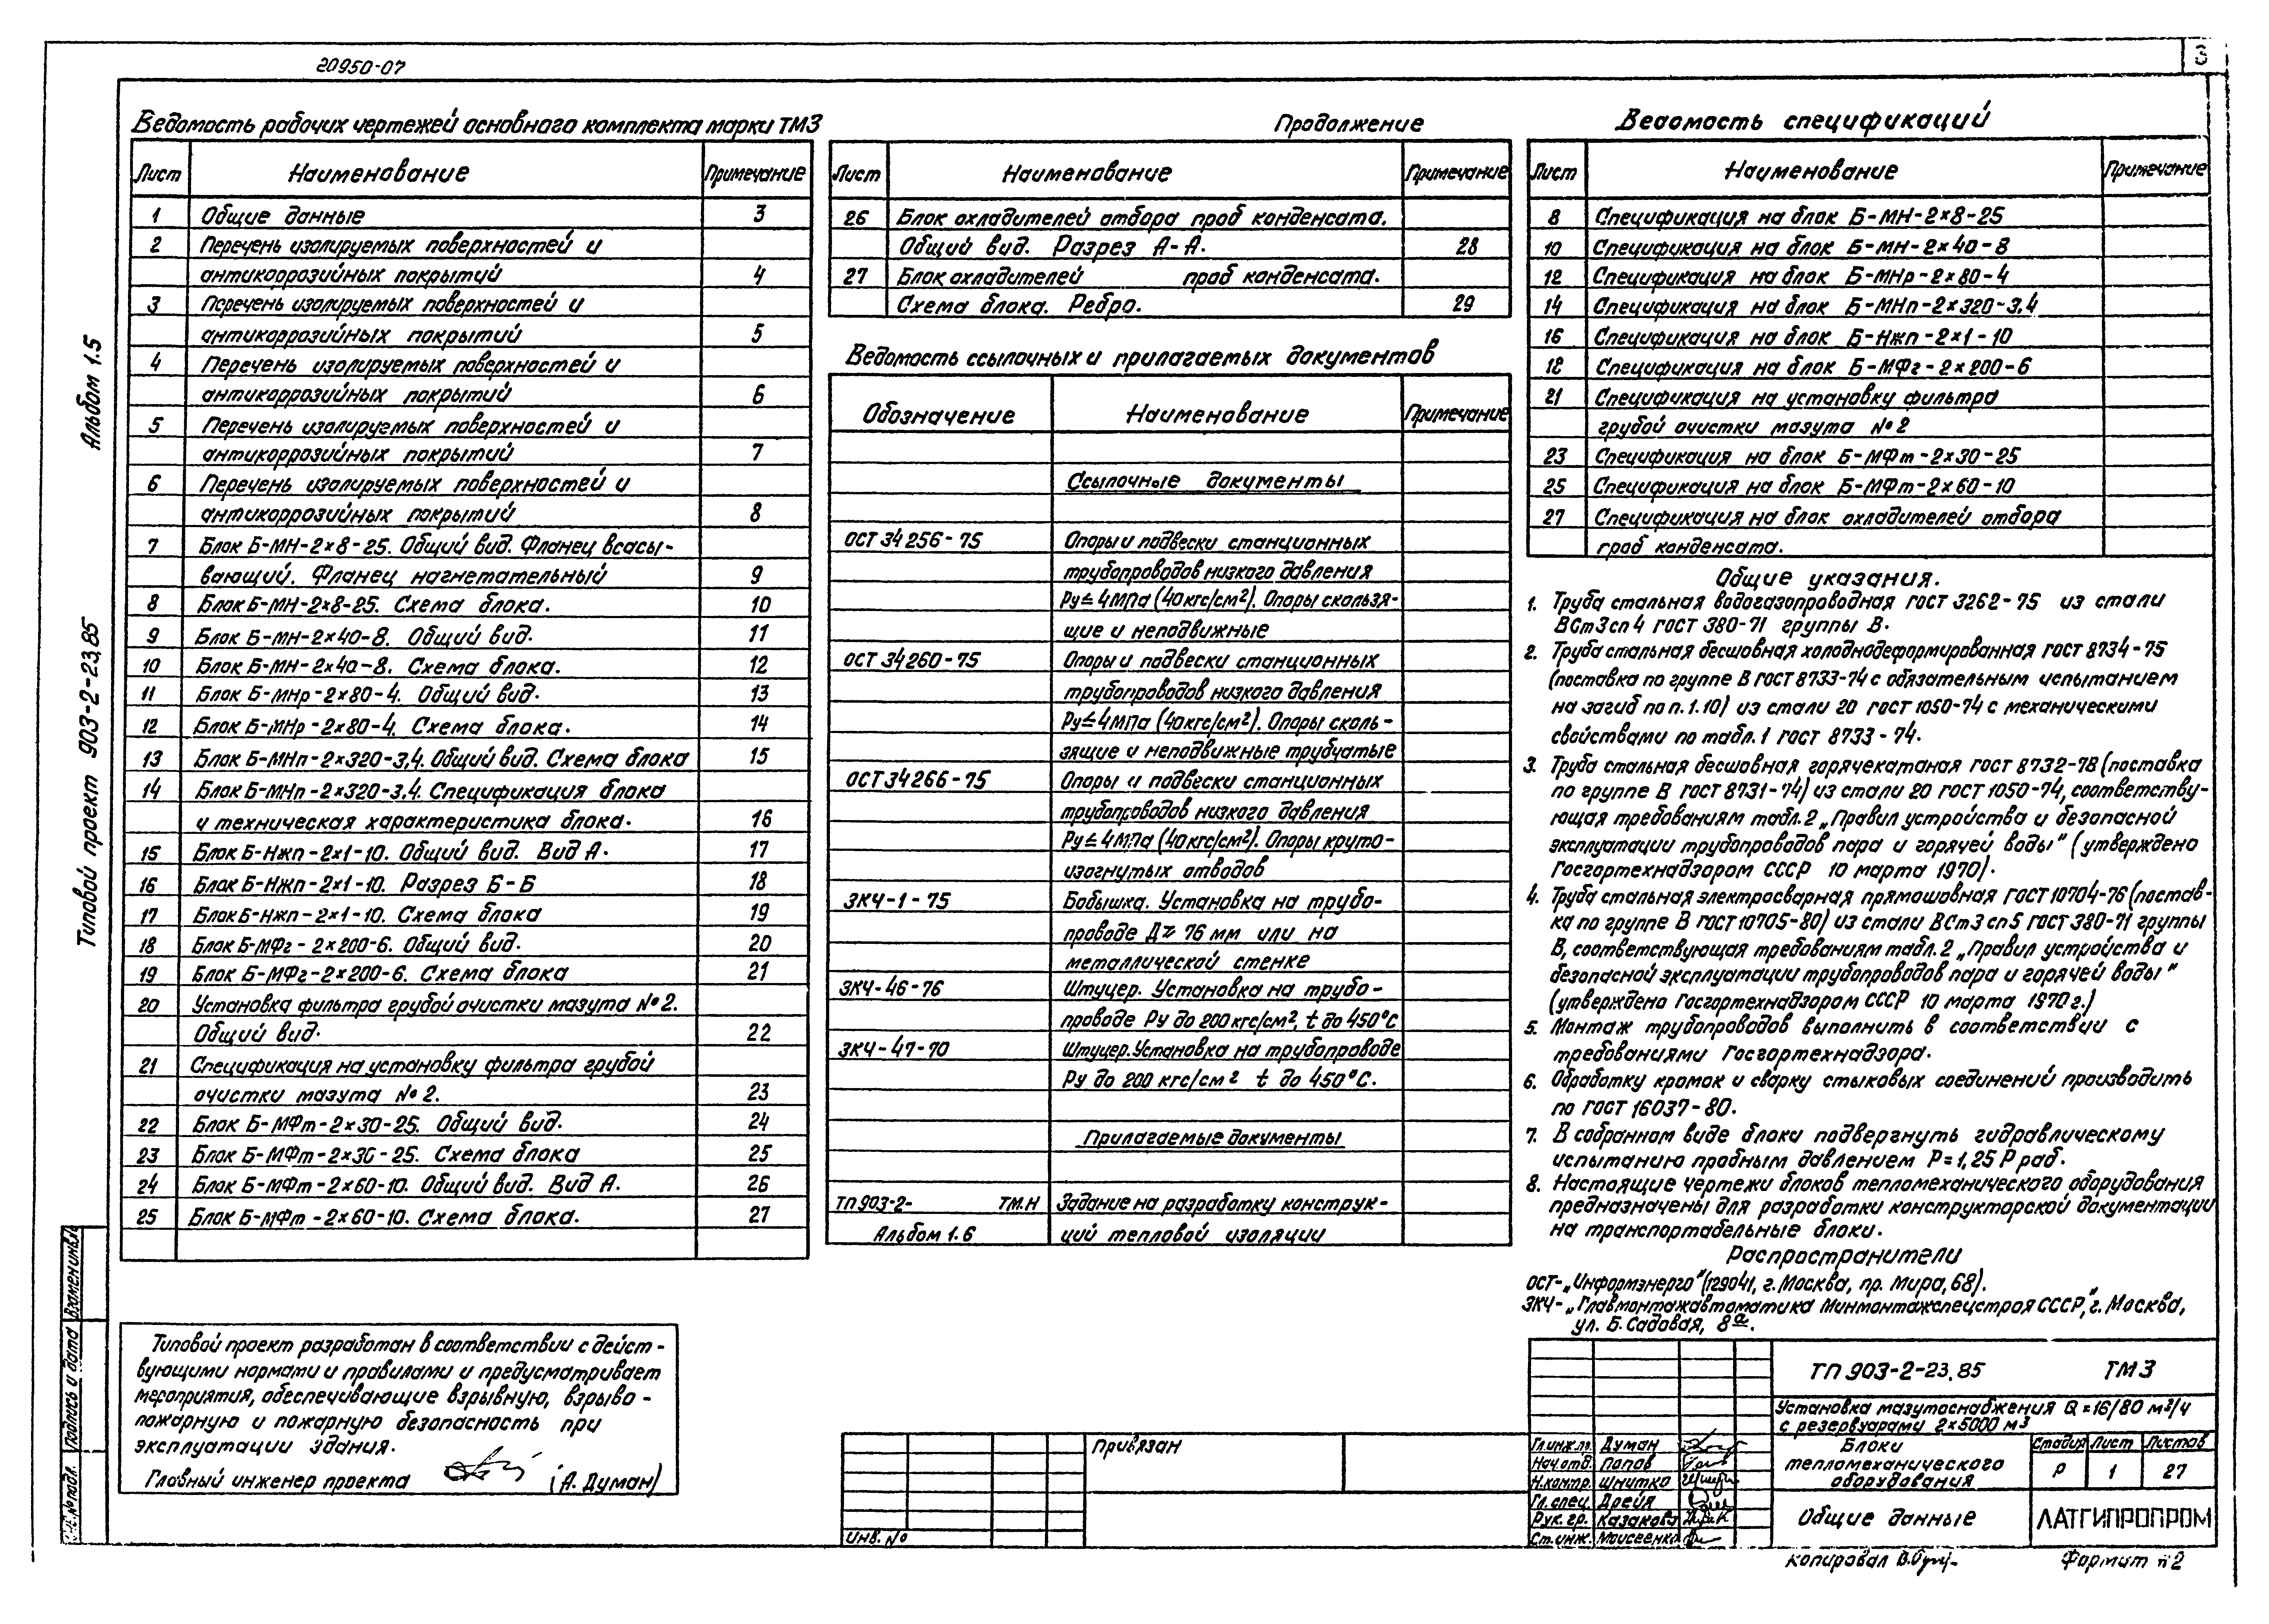 20950-07
3
Альбом 1.5
Типовой проект 903-2-23.85
Ведомость рабочих чертежей основного комплекта марки ТМ3
Лист Наименование Примечание
1 Общие данные 3
2 Перечень изолируемых поверхностей и
антикоррозийных покрытий 4
3 Перечень изолируемых поверхностей и
антикоррозийных покрытий 5
4 Перечень изолируемых поверхностей и
антикоррозийных покрытий 6
5 Перечень изолируемых поверхностей и
антикоррозийных покрытий 7
6 Перечень изолируемых поверхностей и
антикоррозийных покрытий 8
7 Блок Б-МН-2×8-25. Общий вид. Фланец всасы-
вающий. Фланец нагнетательный 9
8 Блок Б-МН-2×8-25. Схема блока. 10
9 Блок Б-МН-2×40-8. Общий вид. 11
10 Блок Б-МН-2×40-8. Схема блока. 12
11 Блок Б-МНр-2×80-4. Общий вид. 13
12 Блок Б-МНр-2×80-4. Схема блока. 14
13 Блок Б-МНп-2×320-3,4. Общий вид. Схема блока 15
14 Блок Б-МНп-2×320-3.4. Спецификация блока
и техническая характеристика блока. 16
15 Блок Б-Нжп-2×1-10. Общий вид. Вид А. 17
16 Блок Б-Нжп-2×1-10. Разрез Б-Б 18
17 Блок Б-Нжп-2×1-10. Схема блока 19
18 Блок Б-МФг-2×200-6. Общий вид. 20
19 Блок Б-МФг-2×200-6. Схема блока 21
20 Установка фильтра грубой очистки мазута №2.
Общий вид. 22
21 Спецификация на установку фильтра грубой
очистки мазута №2. 23
22 Блок Б-МФт-2×30-25. Общий вид. 24
23 Блок Б-МФт-2×30-25. Схема блока 25
24 Блок Б-МФт-2×60-10. Общий вид. Вид А. 26
25 Блок Б-МФт-2×60-10. Схема блока. 27
Типовой проект разработан в соответствии с дейст-
вующими нормами и правилами и предусматривает
мероприятия, обеспечивающие взрывную, взрыво-
пожарную и пожарную безопасность при
эксплуатации здания.
Главный инженер проекта (А. Думан)
Продолжение
Лист Наименование Примечание
26 Блок охладителей отбора проб конденсата.
Общий вид. Разрез А-А. 28
27 Блок охладителей проб конденсата.
Схема блока. Ребро. 29
Ведомость ссылочных и прилагаемых документов
Обозначение Наименование Примечание
Ссылочные документы
ОСТ 34256-75 Опоры и подвески станционных
трубопроводов низкого давления
Ру≤4МПа (40кгс/см²). Опоры скользя-
щие и неподвижные
ОСТ 34260-75 Опоры и подвески станционных
трубопроводов низкого давления
Ру≤4МПа (40кгс/см²). Опоры сколь-
зящие и неподвижные трубчатые
ОСТ 34266-75 Опоры и подвески станционных
трубопроводов низкого давления
Ру≤4МПа (40кгс/см²). Опоры круто-
изогнутых отводов
ЗКЧ-1-75 Бобышка. Установка на трубо-
проводе Д≥76 мм или на
металлической стенке
ЗКЧ-46-76 Штуцер. Установка на трубо-
проводе Ру до 200 кгс/см², t до 450°С
ЗКЧ-47-70 Штуцер. Установка на трубопроводе
Ру до 200 кгс/см² t до 450°С.
Прилагаемые документы
ТП 903-2- ТМ.Н Задание на разработку конструк-
Альбом 1.6 ций тепловой изоляции
Ведомость спецификаций
Лист Наименование Примечание
8 Спецификация на блок Б-МН-2×8-25
10 Спецификация на блок Б-МН-2×40-8
12 Спецификация на блок Б-МНр-2×80-4
14 Спецификация на блок Б-МНп-2×320-3,4
16 Спецификация на блок Б-Нжп-2×1-10
18 Спецификация на блок Б-МФг-2×200-6
21 Спецификация на установку фильтра
грубой очистки мазута №2
23 Спецификация на блок Б-МФт-2×30-25
25 Спецификация на блок Б-МФт-2×60-10
27 Спецификация на блок охладителей отбора
проб конденсата.
Общие указания.
1. Труба стальная водогазопроводная ГОСТ 3262-75 из стали
ВСт3сп4 ГОСТ 380-71 группы В.
2. Труба стальная бесшовная холоднодеформированная ГОСТ 8734-75
(поставка по группе В ГОСТ 8733-74 с обязательным испытанием
на загиб по п. 1.10) из стали 20 ГОСТ 1050-74 с механическими
свойствами по табл. 1 ГОСТ 8733-74.
3. Труба стальная бесшовная горячекатаная ГОСТ 8732-78 (поставка
по группе В ГОСТ 8731-74) из стали 20 ГОСТ 1050-74, соответству-
ющая требованиям табл. 2 „Правил устройства и безопасной
эксплуатации трубопроводов пара и горячей воды" (утверждено
Госгортехнадзором СССР 10 марта 1970).
4. Труба стальная электросварная прямошовная ГОСТ 10704-76 (постав-
ка по группе В ГОСТ 10705-80) из стали ВСт3сп5 ГОСТ 380-71 группы
В, соответствующая требованиям табл. 2 „Правил устройства и
безопасной эксплуатации трубопроводов пара и горячей воды"
(утверждено Госгортехнадзором СССР 10 марта 1970г.)
5. Монтаж трубопроводов выполнить в соответствии с
требованиями Госгортехнадзора.
6. Обработку кромок и сварку стыковых соединений производить
по ГОСТ 16037-80.
7. В собранном виде блоки подвергнуть гидравлическому
испытанию пробным давлением Р=1,25 Р раб.
8. Настоящие чертежи блоков тепломеханического оборудования
предназначены для разработки конструкторской документации
на транспортабельные блоки.
Распространители
ОСТ-„Информэнерго" (129041, г. Москва, пр. Мира, 68).
ЗКЧ-„Главмонтажавтоматика Минмонтажспецстроя СССР," г. Москва,
ул. Б. Садовая, 8а.
ТП 903-2-23.85 ТМ3
Установка мазутоснабжения Q=16/80 м³/ч
с резервуарами 2×5000 м³
Гл.инж.пр. Думан
Нач.отд. Попов
Н.контр. Шнитко
Гл.спец. Дрейя
Рук.гр. Казакова
Ст.инж. Моисеенко
Блоки
тепломеханического
оборудования
Стадия Лист Листов
Р 1 27
Общие данные
ЛАТГИПРОПРОМ
Привязан
Инв. №
Взамен инв.№
Подпись и дата
Инв.№ подл.
Копировал
Формат 12